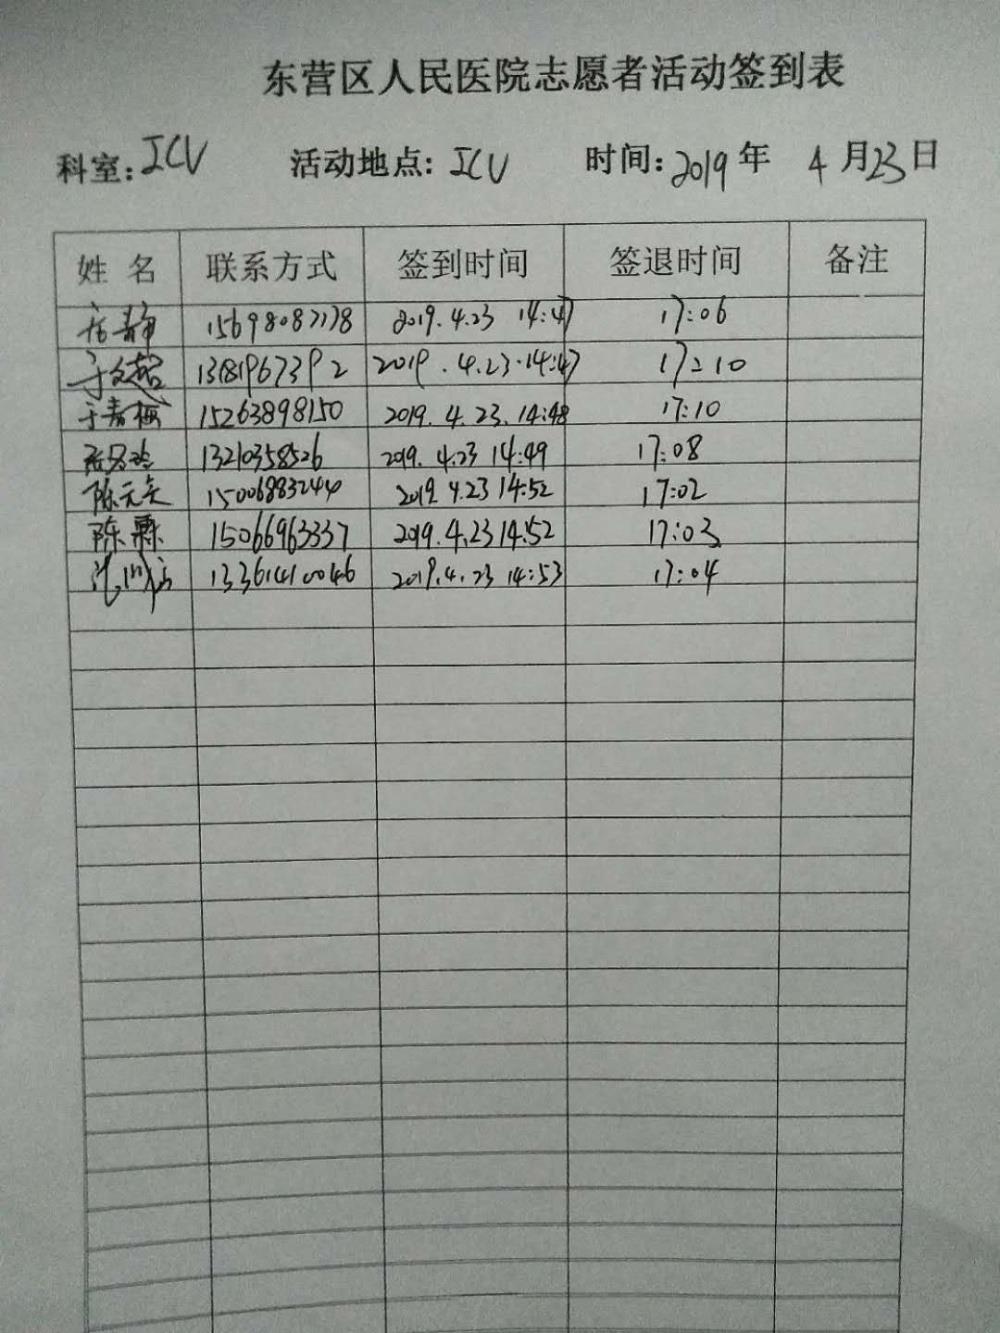 东营区人民医院志愿者活动签到表
科室: ICU 活动地点: ICU 时间: 2019 年 4 月 23 日
姓 名 联系方式 签到时间 签退时间 备注
静 2019.4.23 14:47 17:06
于文超 2019.4.23.14:47 17:10
于春梅 15263898150 2019.4.23.14:48 17:10
13210358526 2019.4.23 14:49 17:08
陈元 15006883244 2019 4.23 14:52 17:02
陈霖 15066963337 2019.4.23 14:52 17:03
13361410046 2019.4.23 14:53 17:04